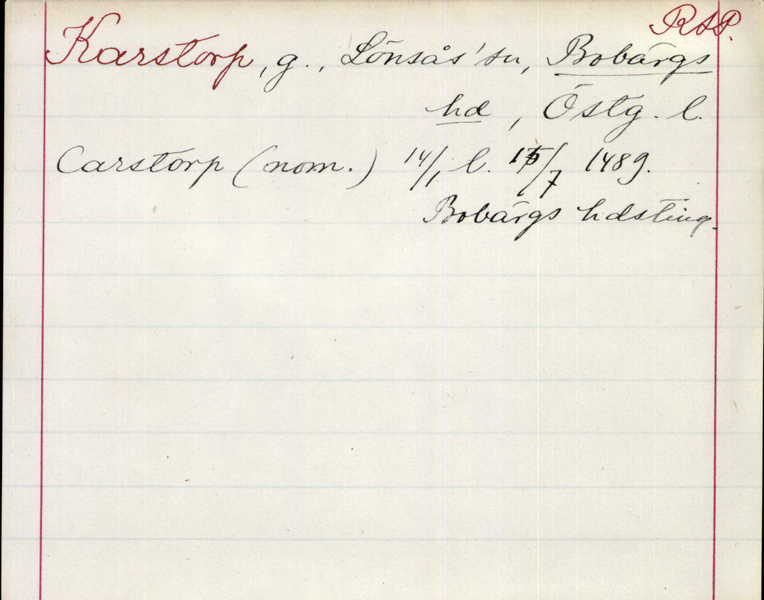 RAP.
Karstorp, g., Lönsås' sn, Bobärgs
hd, Östg. l.
Carstorp (nom.) 14/1 l. 15/7 1489.
Bobärgs hdsting.